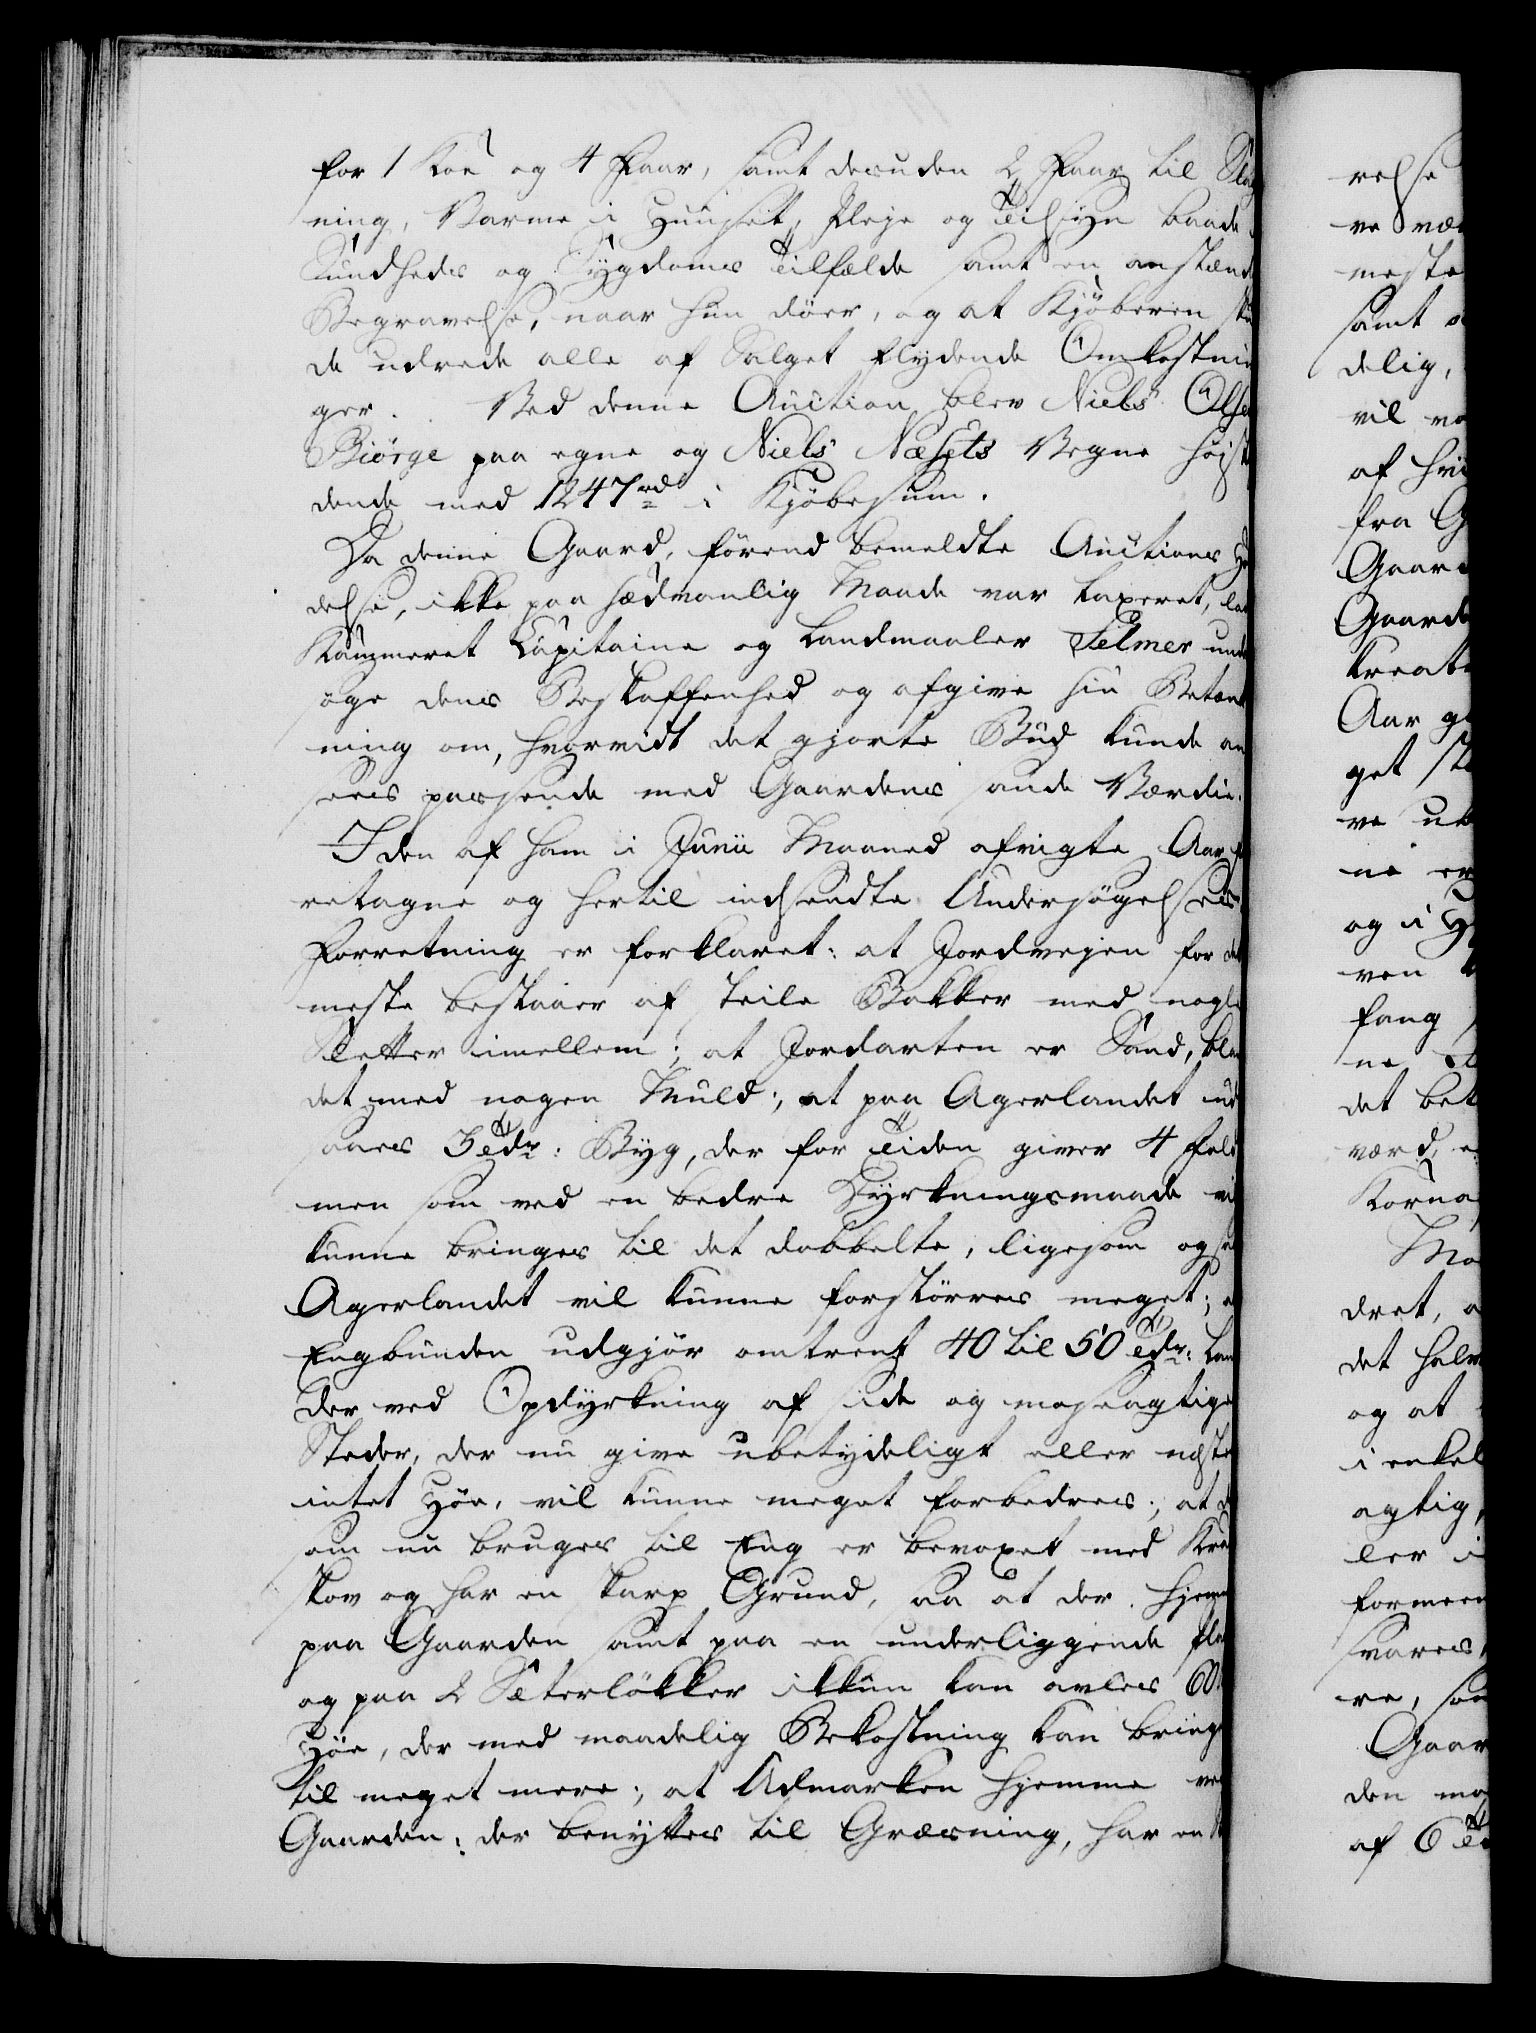 for 1 Koe og 4 Faar, samt desuden 2 Faar til Slag
ning, Varme i Huuset, Pleje og Tilsyn baade i
Sundheds og Sygdoms Tilfælde samt en anstænd
Begravelse, naar hun döer, og at Kjöberen skul
de udrede alle af Salget flydende Omkostnin
ger. Ved denne Auction blev Niels Olsen
Biörge paa egne og Niels Næsets Vegne höjst
dende med 1247 rd i Kjöbesum.
Da denne Gaard, förend bemeldte Auctions
delse, ikke paa sædvanlig Maade var taxeret, lod
Kammeret Capitaine og Landmaaler Selmer und
söge dens Beskaffenhed og afgive sin Betænk
ning om, hvorvidt det gjorte Bud kunde an
sees passende med Gaardens sande Værdie.
I den af ham i Junii Maaned afvigte Aar fo
retagne og hertil indsendte Undersögelses
Forretning er forklaret: at Jordvejen for det
meste bestaaer af steile Bakker med nogle
Sletter imellem; at Jordarten er Sand, blan
det med nogen Muld; at paa Agerlandet ud
saaes 3 Tdr: Byg, der for Tiden giver 4 fold
men som ved en bedre Dyrkningsmaade vil
kunne bringes til det dobbelte, ligesom ogsaa
Agerlandet vil kunne forstörres meget; at
Engbunden udgjör omtrent 40 til 50 Tdr: Land
der ved Opdyrkning af side og moseagtige
Steder, der nu give ubetydeligt eller næsten
intet Höe, vil kunne meget forbedres; at d
som nu bruges til Eng er bevoxet med Krat
skov og har en skarp Grund, saa at der hjemme
paa Gaarden samt paa en underliggende
og paa 2 Sæterlökker ikkun kan avles 60
Höe, der med maadelig Bekostning kan bringes
til meget mere; at Udmarken hjemme ved
Gaarden, der benyttes til Græsning, har en
relse
ve væ
meste
samt o
delig,
vil va
af hvi
fra G
Gaard
Gaarde
kreat
Aar g
get st
ve ub
ne er
og i H
ven
fang
ne
det bet
værd, e
Korna
Ma
dret, o
det halv
og at
i enkel
agtig,
ler i
formeen
svares,
re, som
Gaar
den ma
af 6 T